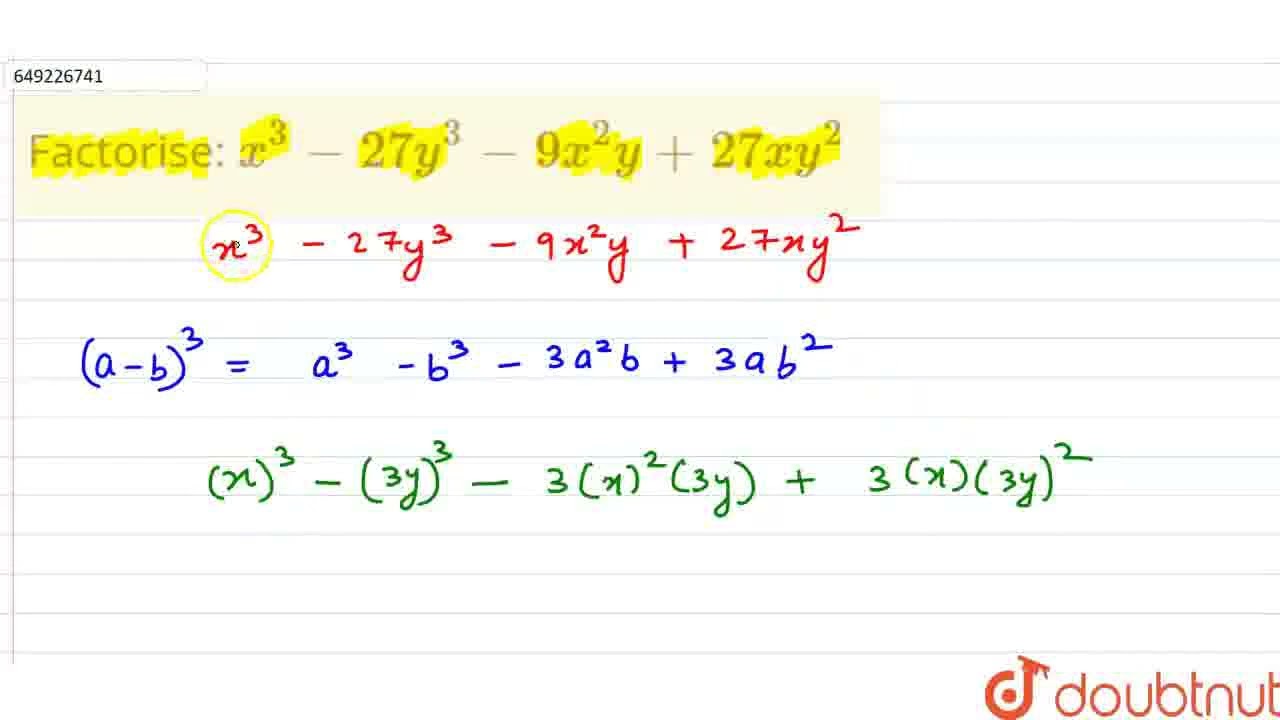 649226741
Factorise: x³ − 27y³ − 9x²y + 27xy²
x³ − 27y³ − 9x²y + 27xy²
(a−b)³ = a³ − b³ − 3a²b + 3ab²
(x)³ − (3y)³ − 3(x)²(3y) + 3(x)(3y)²
doubtnut